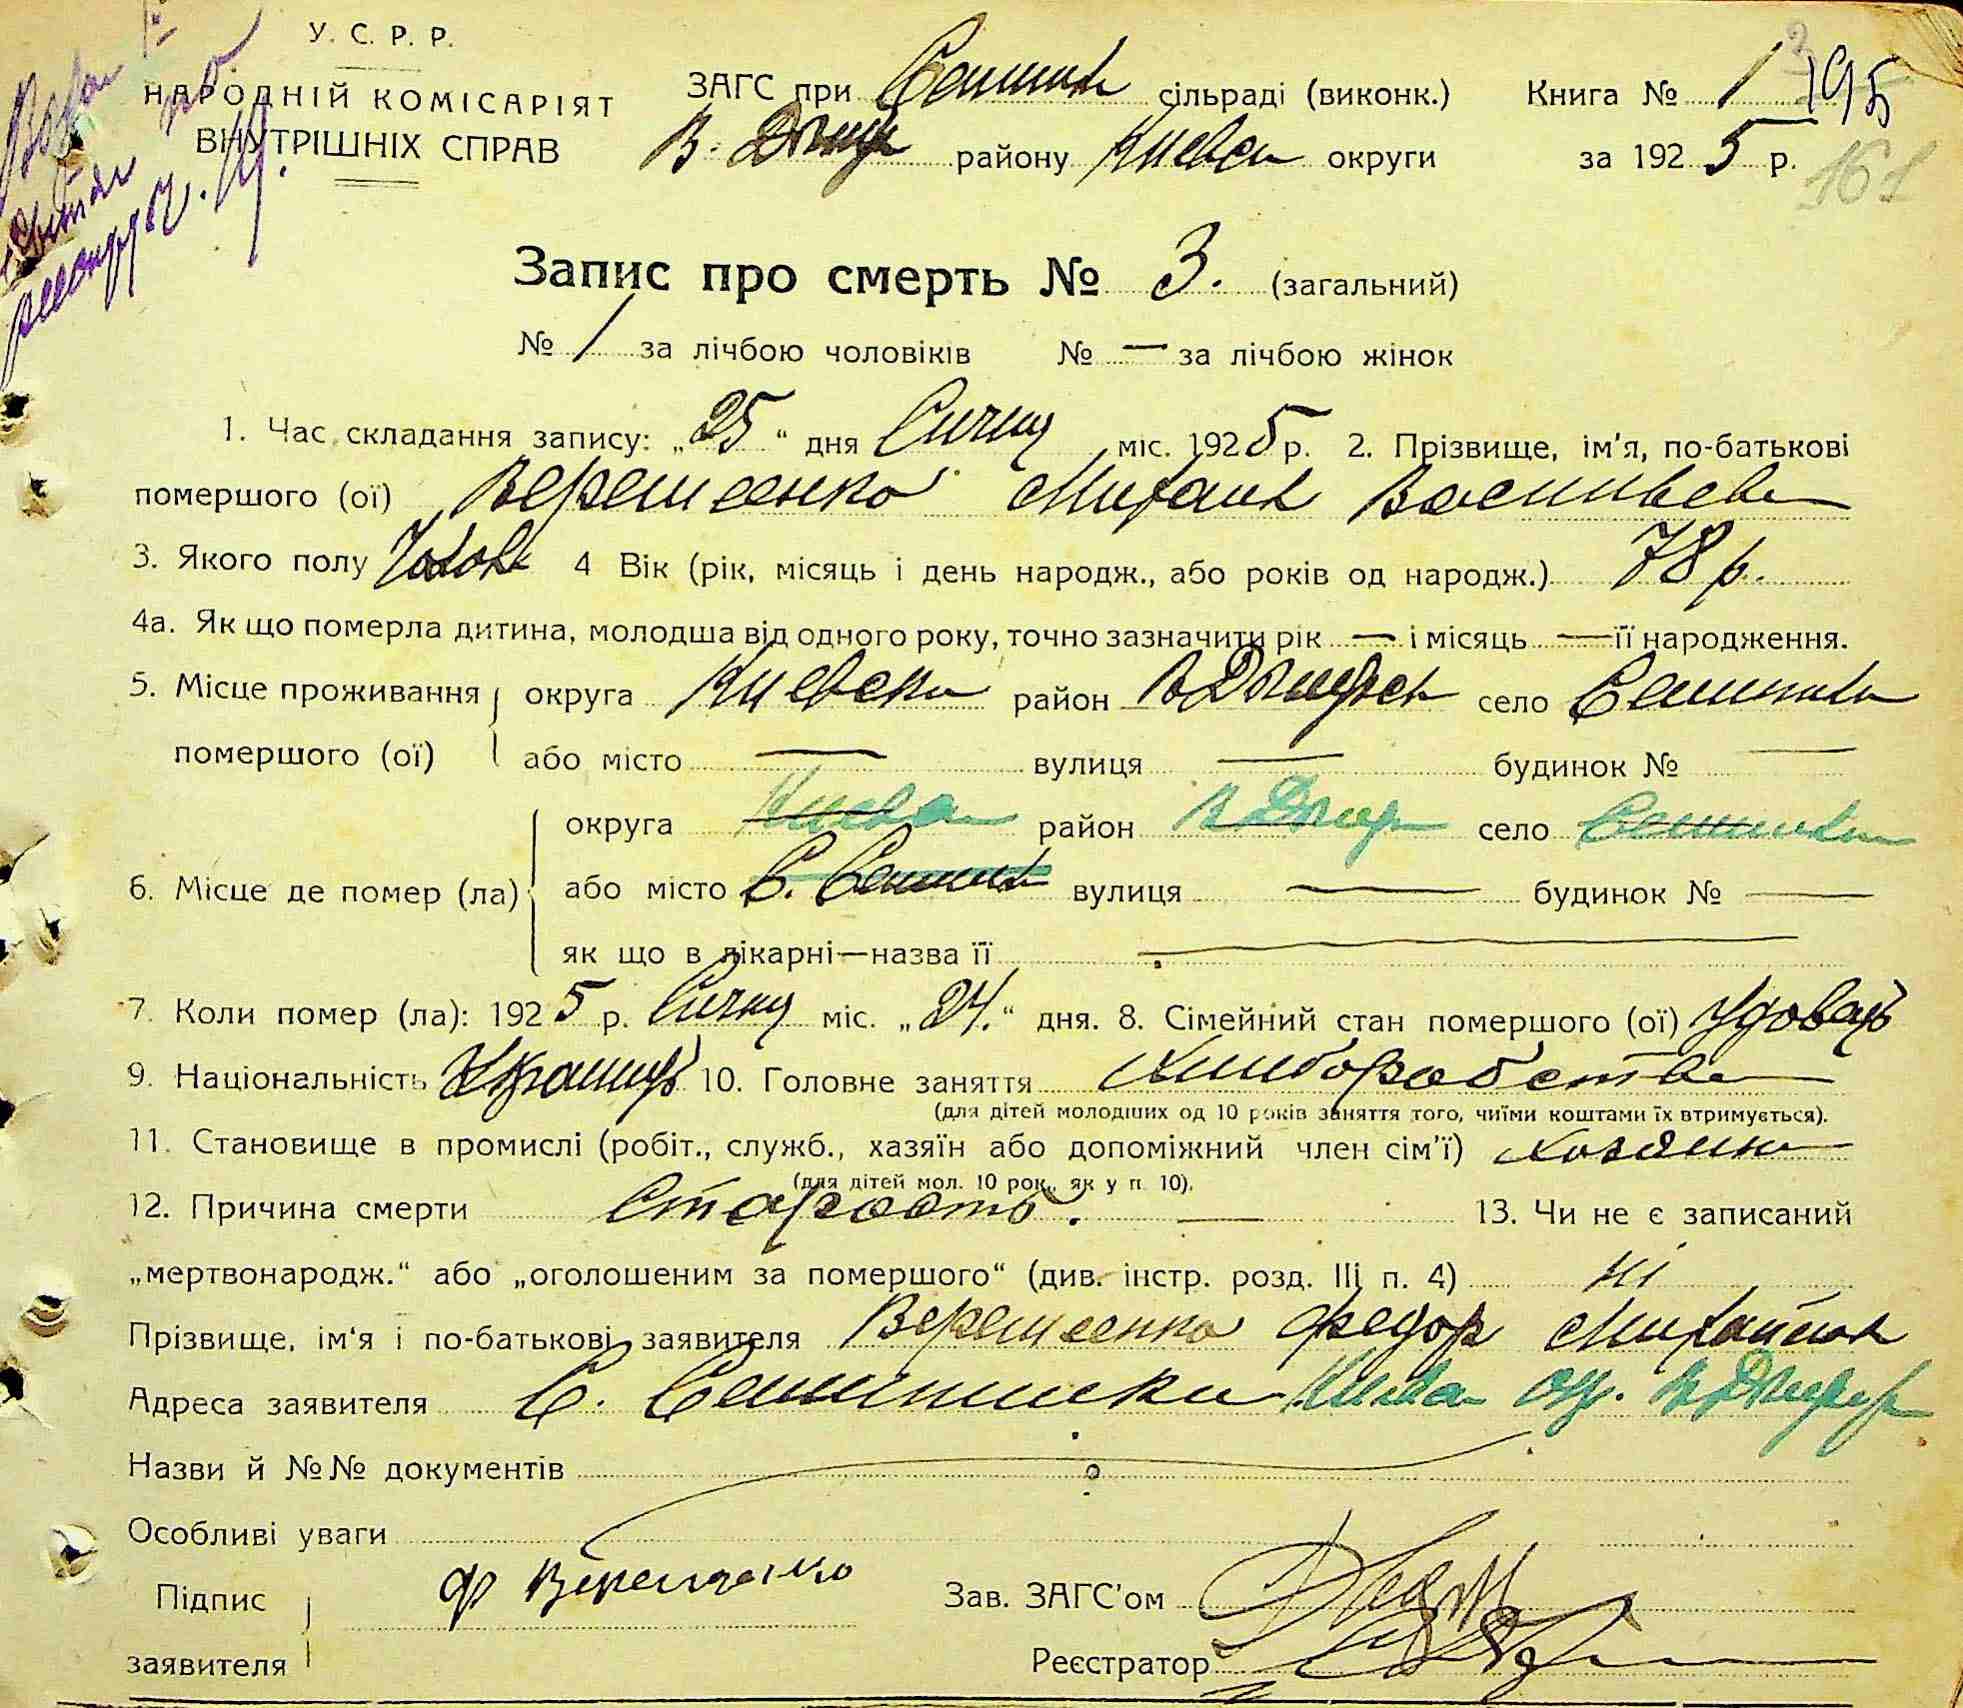 У. С. Р. Р.
НАРОДНІЙ КОМІСАРІЯТ
ВНУТРІШНІХ СПРАВ
ЗАГС при сільраді (виконк.)
В. Дымер району Киевск округи
Книга № 1
195
за 1925 р.
161
Запис про смерть № 3. (загальний)
№ 1 за лічбою чоловіків № — за лічбою жінок
1. Час складання запису: „25“ дня Січня міс. 1925 р. 2. Прізвище, ім'я, по-батькові
помершого (ої) Верещенко Михаил Васильев
3. Якого полу Чолов 4 Вік (рік, місяць і день народж., або років од народж.) 78 р.
4а. Як що померла дитина, молодша від одного року, точно зазначити рік — і місяць — її народження.
5. Місце проживання округа Киевска район ВДымерск село
помершого (ої) або місто — вулиця — будинок № —
округа Киевск район ВДымер село
6. Місце де помер (ла) або місто С. вулиця — будинок № —
як що в лікарні—назва її —
7. Коли помер (ла): 1925 р. Січня міс. „24.“ дня. 8. Сімейний стан помершого (ої) Удовець
9. Національність Украинец 10. Головне заняття Хлиборобство
(для дітей молодших од 10 років заняття того, чиїми коштами їх втримується).
11. Становище в промислі (робіт., служб., хазяїн або допоміжний член сім'ї) Хозяин
(для дітей мол. 10 рок., як у п. 10).
12. Причина смерти Старость. — 13. Чи не є записаний
„мертвонародж.“ або „оголошеним за помершого“ (див. інстр. розд. III п. 4) ні
Прізвище, ім'я і по-батькові заявителя Верещенко Федор Михайлов
Адреса заявителя С. Киевск окр. ВДымер р
Назви й №№ документів
Особливі уваги
Підпис Ф Верещенко Зав. ЗАГС'ом
заявителя Реєстратор